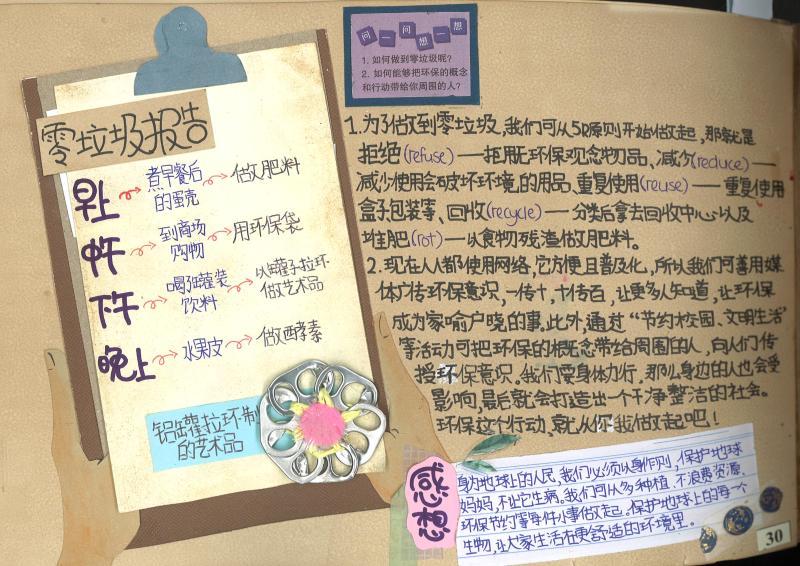 零垃圾报告
早上
煮早餐后
的蛋壳
做肥料
中午
到商场
购物
用环保袋
下午
喝

罐装
饮料
以罐子拉环
做艺术品
晚上
水果皮
做酵素
铝罐拉环制
的艺术品
问一问想一想
1. 如何做到零垃圾呢？
2. 如何能够把环保的概念
和行动带给你周围的人？
1.为了做到零垃圾，我们可从5R原则开始做起，那就是
拒绝(refuse)——拒用无环保观念物品、减少(reduce)——
减少使用会破坏环境的用品、重复使用(reuse)——重复使用
盒子包装等、回收(recycle)——分类后拿去回收中心以及
堆肥(rot)——以食物残渣做肥料。
2.现在人人都使用网络，它方便且普及化，所以我们可善用媒
体广传环保意识，一传十，十传百，让更多人知道，让环保
成为家喻户晓的事。此外，通过“节约校园、文明生活”
等活动可把环保的概念带给周围的人，向人们传
授环保意识。我们要身体力行，那么身边的人也会受
影响，最后就会打造出一个干净整洁的社会。
环保这个行动，就从你我做起吧！
感想
身为地球上的人民，我们必须以身作则，保护地球
妈妈，不让它生病。我们可从多种植，不浪费资源、
环保节约等每件小事做起。保护地球上的每一个
生物，让大家生活在更舒适的环境里。
30